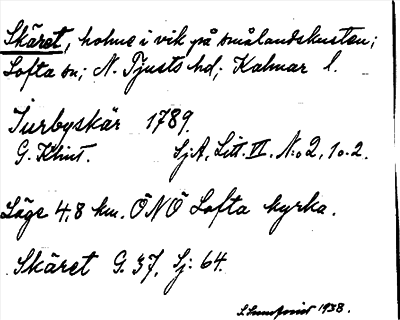 Skäret, holme i vik på smålandskusten;
Lofta sn; N. Tjusts hd; Kalmar l.
Turbyskär 1789.
G. Klint. SjA, Litt. VI, N:o 2, 1o. 2.
Läge 4,8 km. ÖNÖ Lofta kyrka.
Skäret G. 37, Sj: 64.
S. Sundqvist 1938.